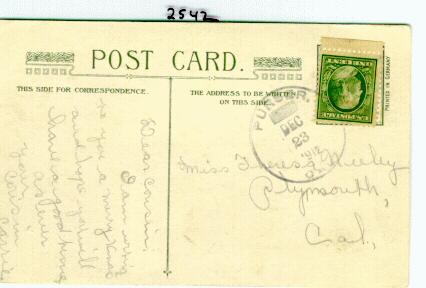 2542
POST CARD.
THIS SIDE FOR CORRESPONDENCE.
THE ADDRESS TO BE WRITTEN
ON THIS SIDE.
PRINTED IN GERMANY
DEC
23
1912
Dear Cousin,
I am
you a merry Xmas
and hope you will
have a good time
as ever
your
Cousin
Miss Theresa
Plymouth,
Cal,